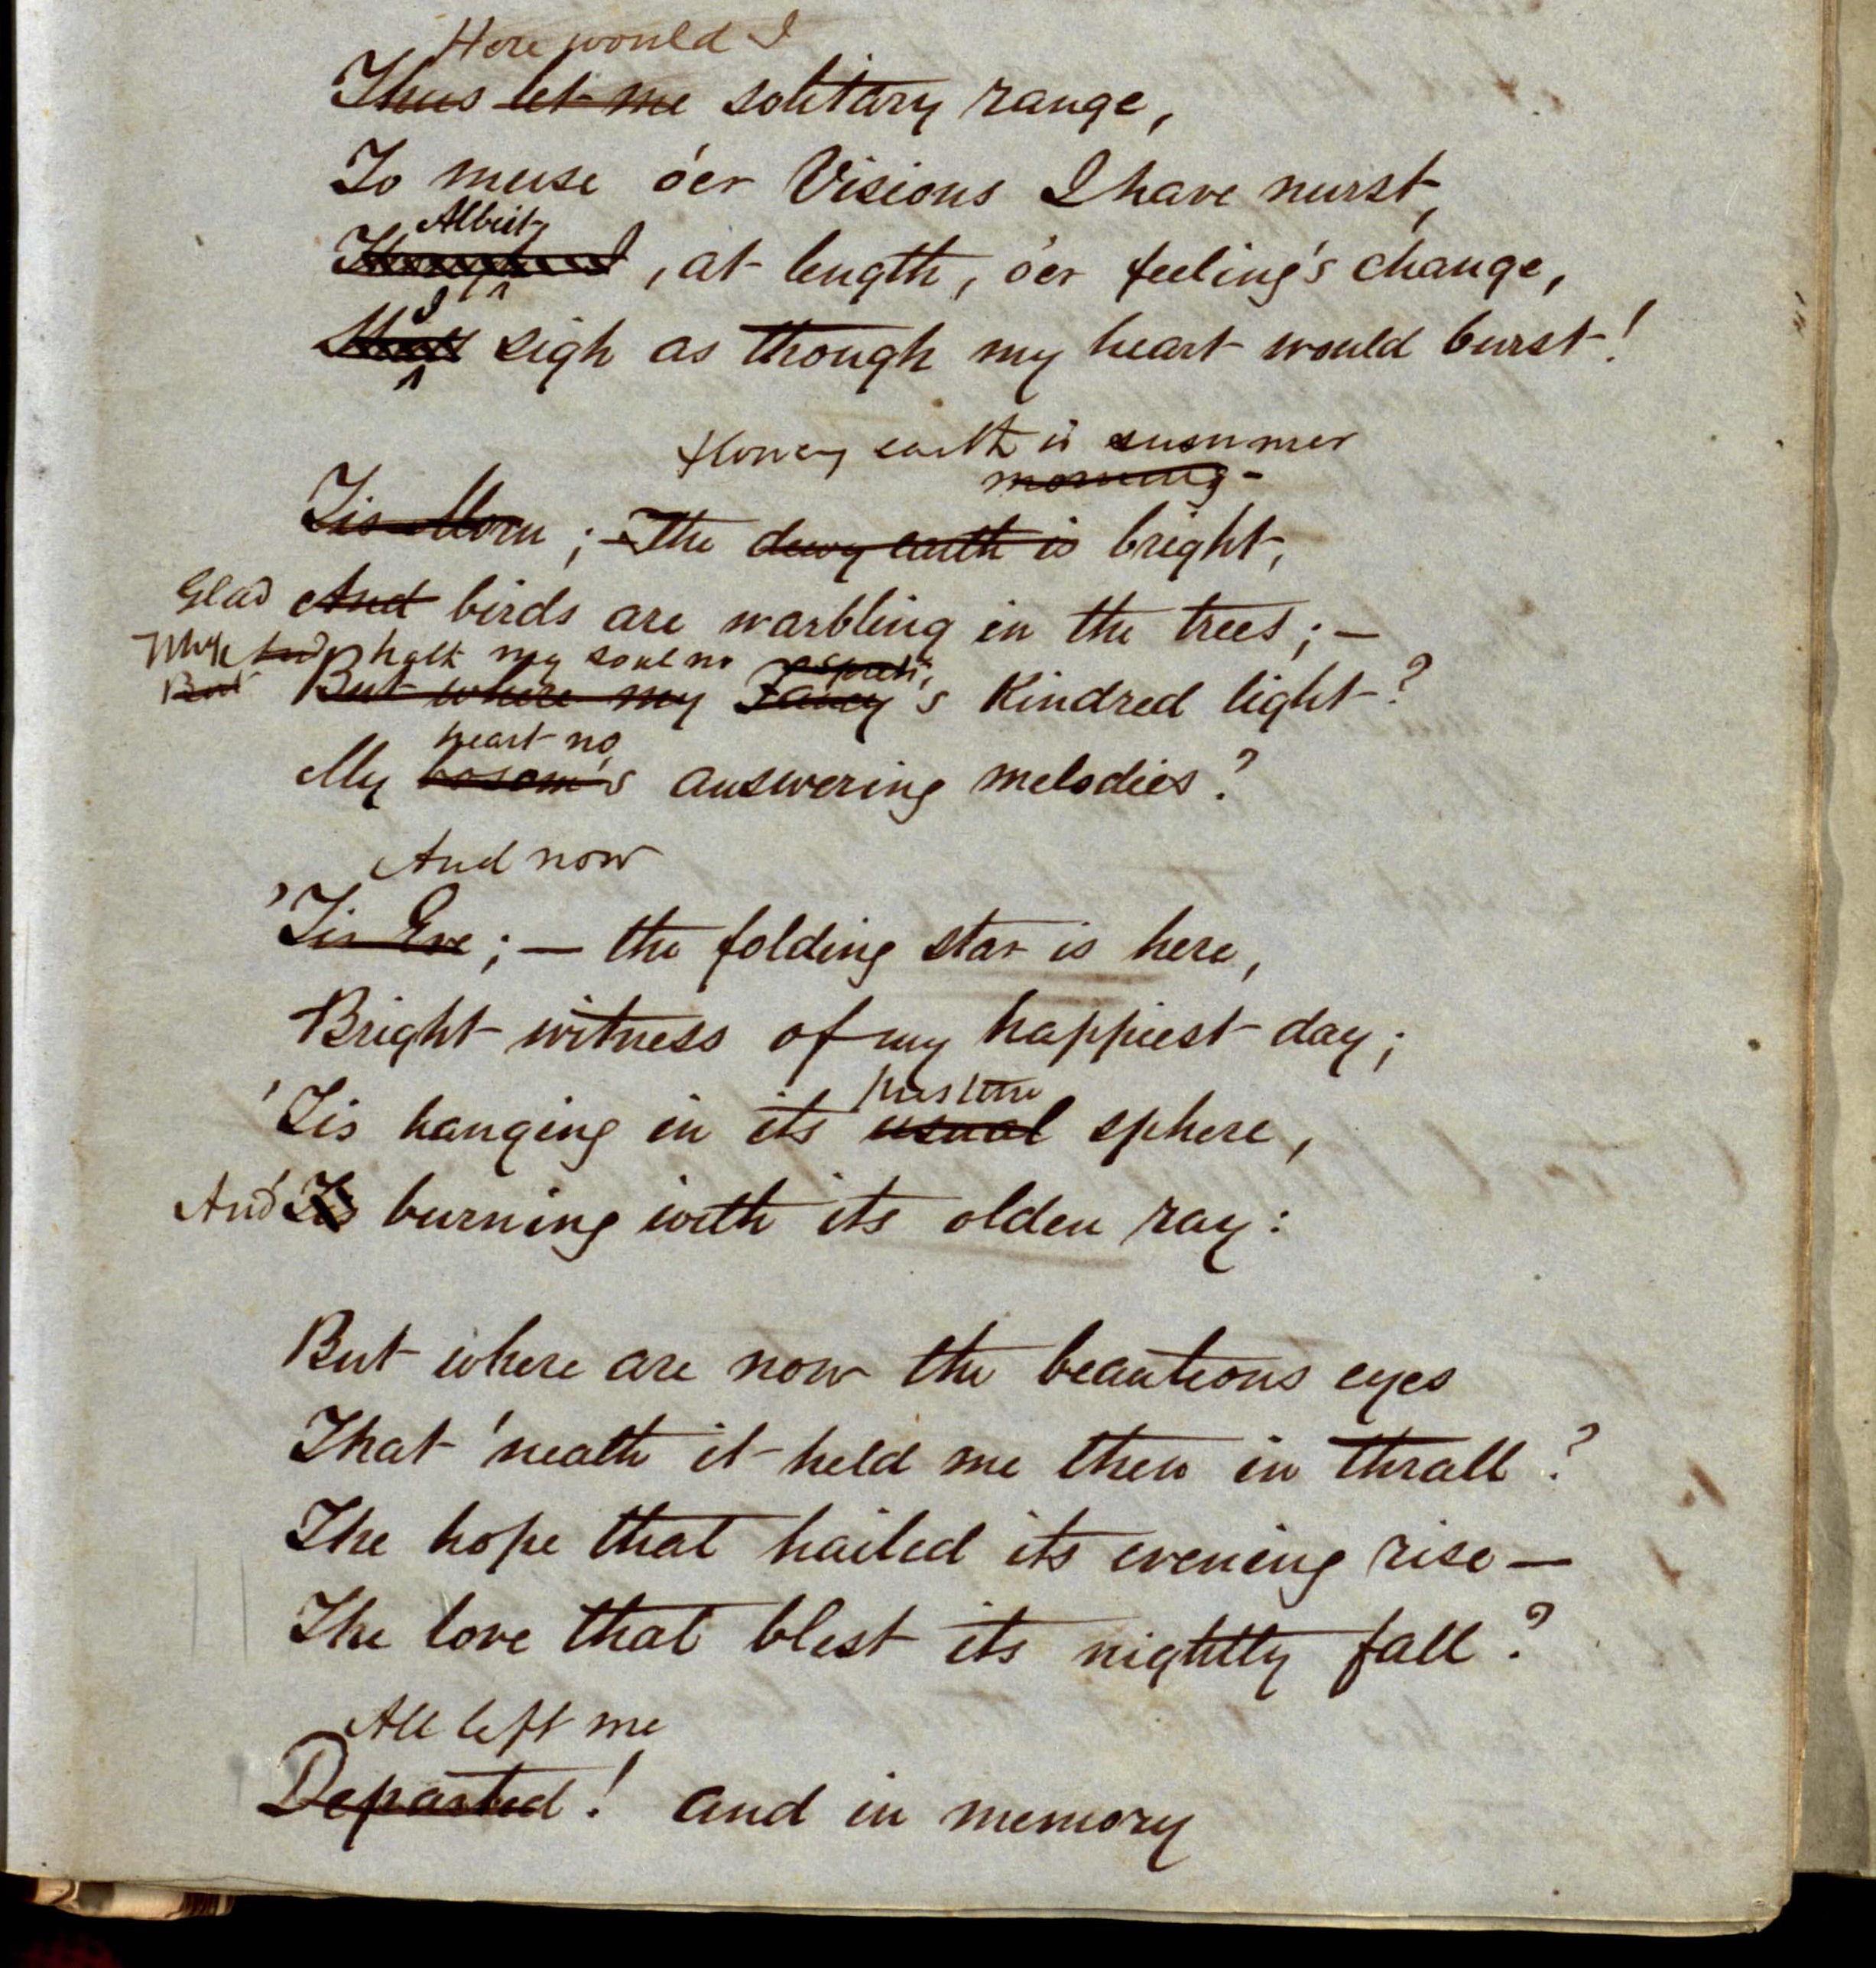 Here would I
Thus let me solitary range,
To muse o'er Visions I have nurst,
Albeit
, at length, o'er feeling's change,
I
sigh as though my heart would burst!
flowery earth is summer
morning-
Tis Morn; - The dewy earth is bright,
Glad And birds are warbling in the trees; —
Why hath my soul no
But But where my Fancy's Kindred light?
heart no
My bosom's answering melodies?
And now
'Tis Eve; — the folding star is here,
Bright witness of my happiest day;
'Tis hanging in its usual sphere,
And Tis burning with its olden ray:
But where are now the beauteous eyes
That 'neath it held me then in thrall?
The hope that hailed its evening rise —
The love that blest its nightly fall?
All left me
Departed! and in memory